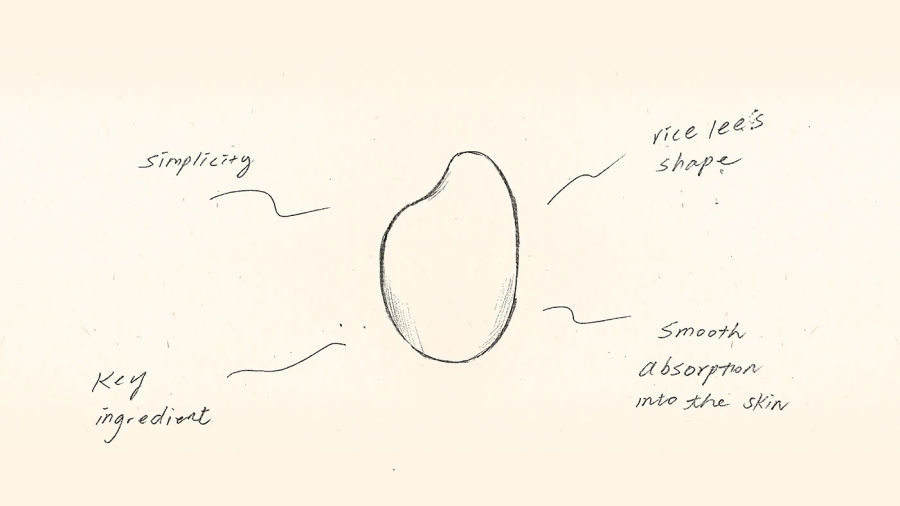 simplicity
rice lee's
shape
Key
ingredient
Smooth
absorption
into the skin